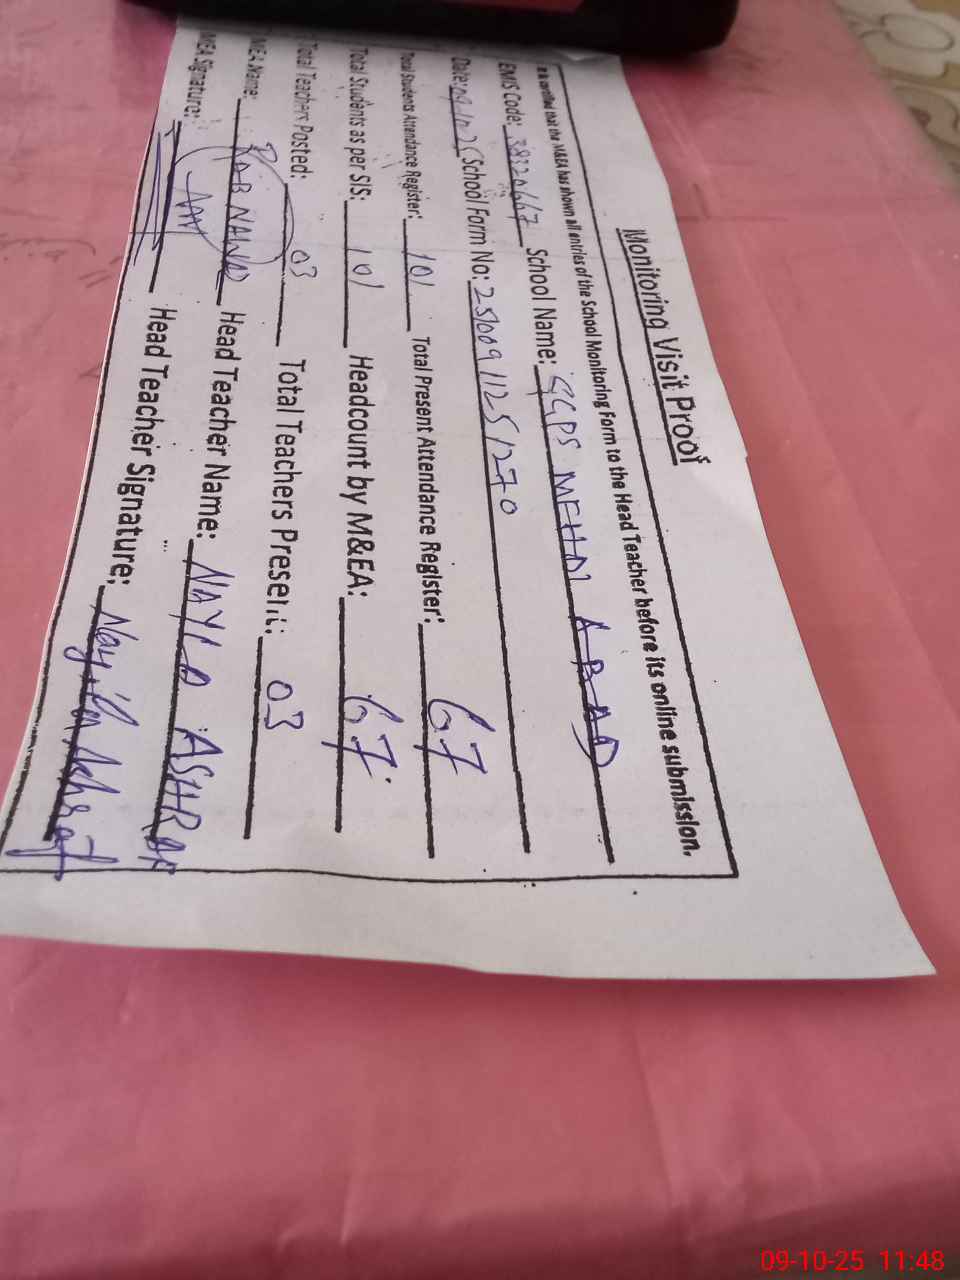 Monitoring Visit Proof
It is certified that the M&EA has shown all entries of the School Monitoring Form to the Head Teacher before its online submission.
EMIS Code: 38320667 School Name: GGPS MEHDI ABAD
Date: School Form No: 251009112511270
Total Students Attendance Register: 101 Total Present Attendance Register: 67
Total Students as per SIS: 101 Headcount by M&EA: 67
Total Teachers Posted: 03 Total Teachers Present: 03
MEA Name: RAB NAWAZ Head Teacher Name: NAYLA ASHRAF
MEA Signature: Head Teacher Signature: Nayila Ashraf
09-10-25 11:48